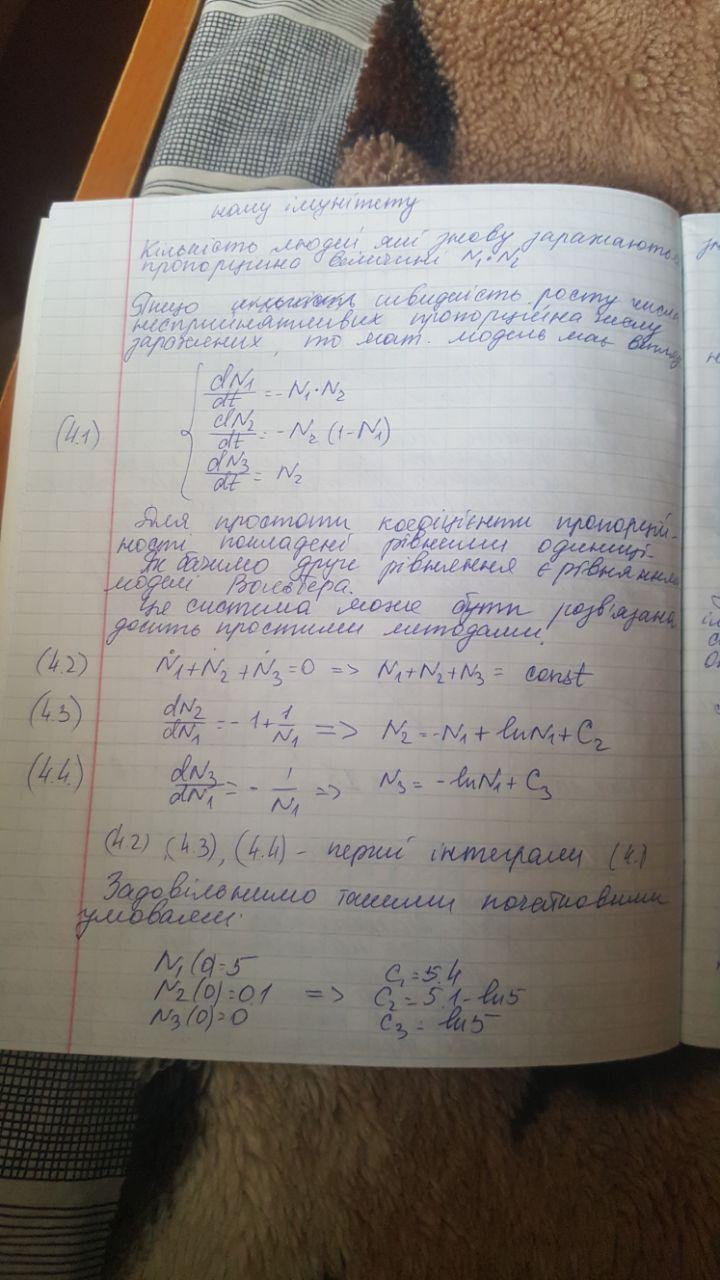 ному імунітету
Кількість людей які знову заражаються
пропорційна величині N₁·N₂
Якщо швидкість росту числа
несприйнятливих пропорційна числу
заражених, то мат. модель має вигляд
dN₁/dt = -N₁·N₂
(4.1) dN₂/dt = -N₂(1-N₁)
dN₃/dt = N₂
Для простоти коефіцієнти пропорцій-
ності покладені рівними одиниці.
Як бачимо друге рівняння є рівнянням
моделі Вольтера.
Ця система може бути розв'язана
досить простими методами.
(4.2) Ṅ₁+Ṅ₂+Ṅ₃=0 => N₁+N₂+N₃ = const
(4.3) dN₂/dN₁ = -1+1/N₁ => N₂=-N₁+lnN₁+C₂
(4.4.) dN₃/dN₁ = -1/N₁ => N₃=-lnN₁+C₃
(4.2), (4.3), (4.4) - перші інтеграли (4.1
Задовільнимо такими початковими
умовами:
N₁(0)=5 C₁=5.4
N₂(0)=0.1 => C₂=5.1-ln5
N₃(0)=0 C₃=ln5